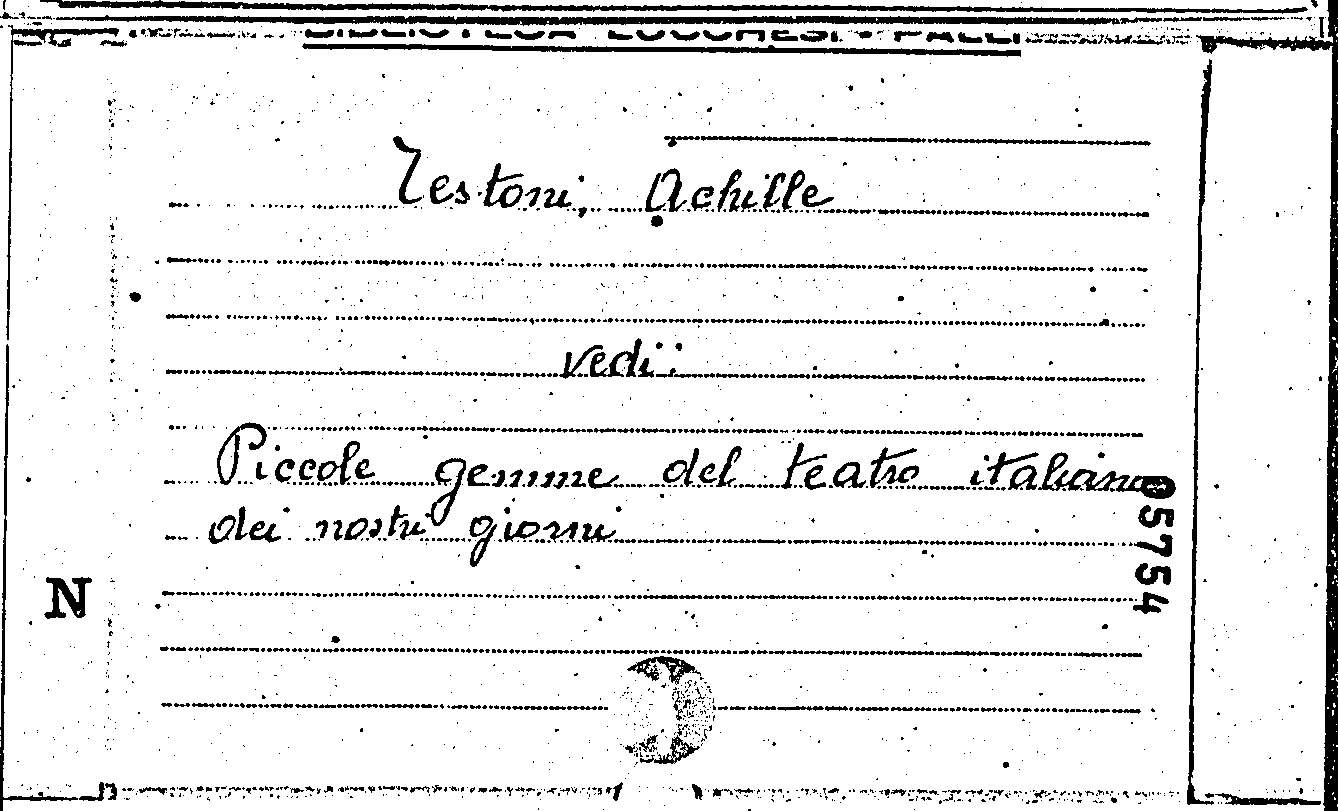 BIBLIOTECA LUCCHESI - PALLI
Testoni, Achille
vedi:
Piccole gemme del teatro italiano
dei nostri giorni
N
05754